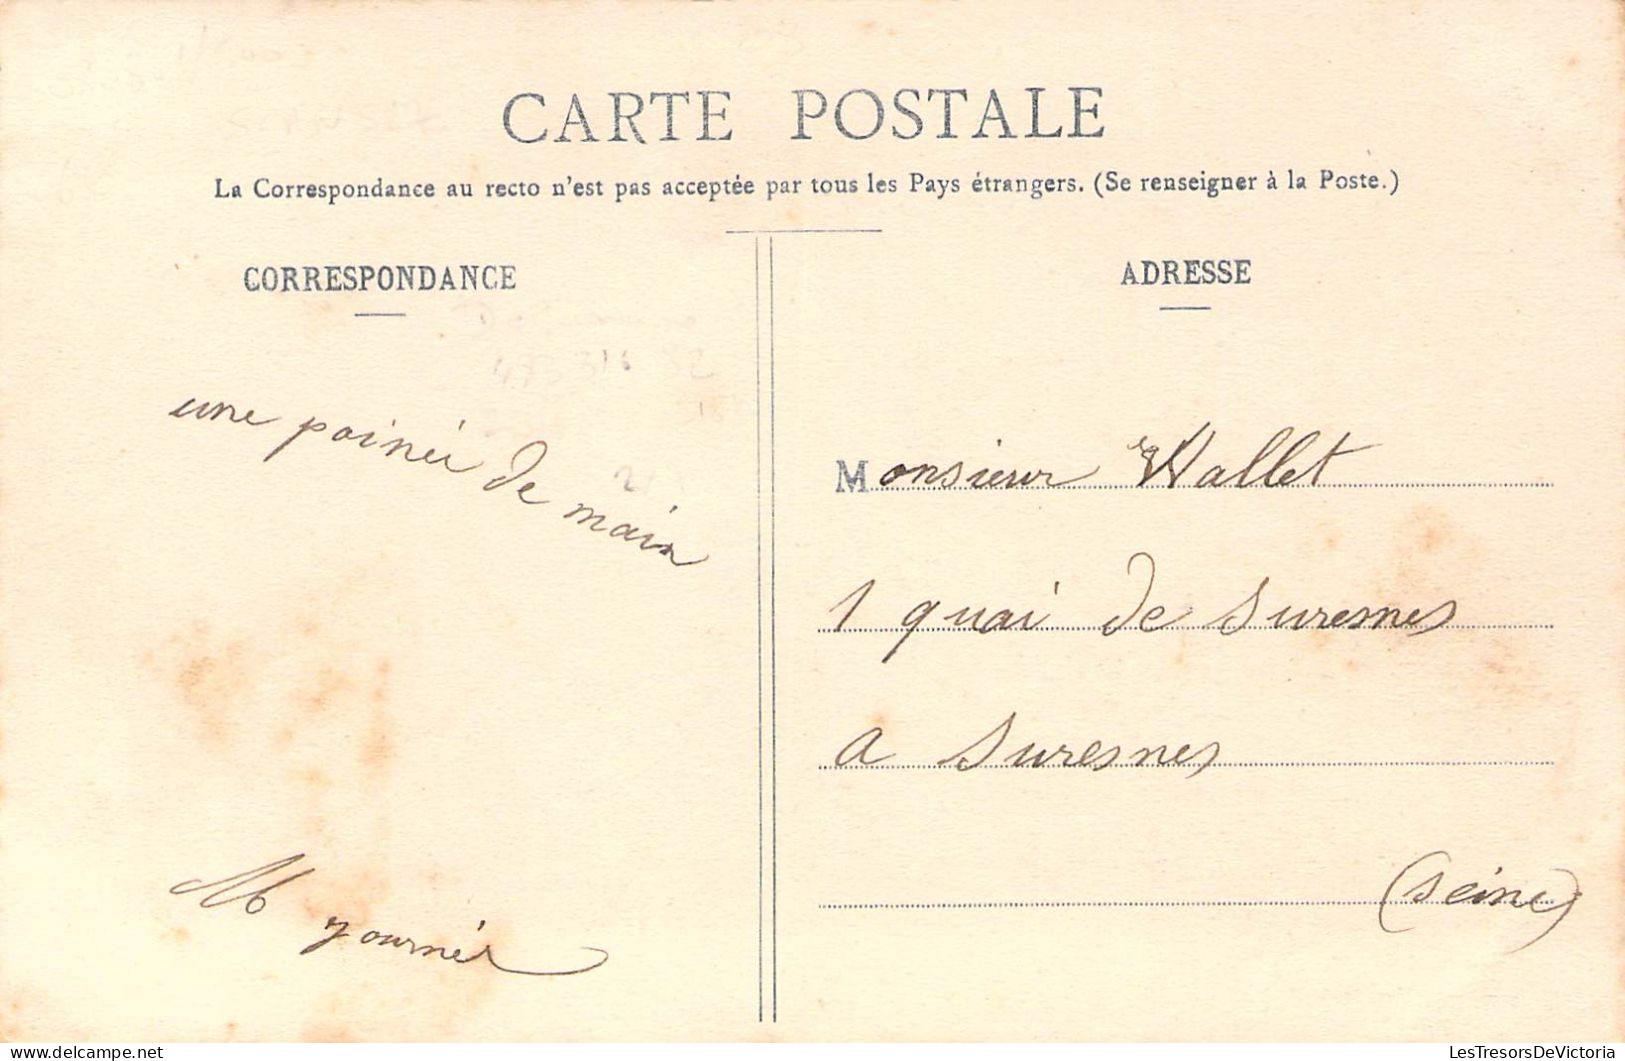 CARTE POSTALE
La Correspondance au recto n'est pas acceptée par tous les Pays étrangers. (Se renseigner à la Poste.)
CORRESPONDANCE
une poinée de main
M Journée
ADRESSE
Monsieur Wallet
1 quai de Suresnes
a Suresnes
(Seine)
LesTresorsDeVictoria